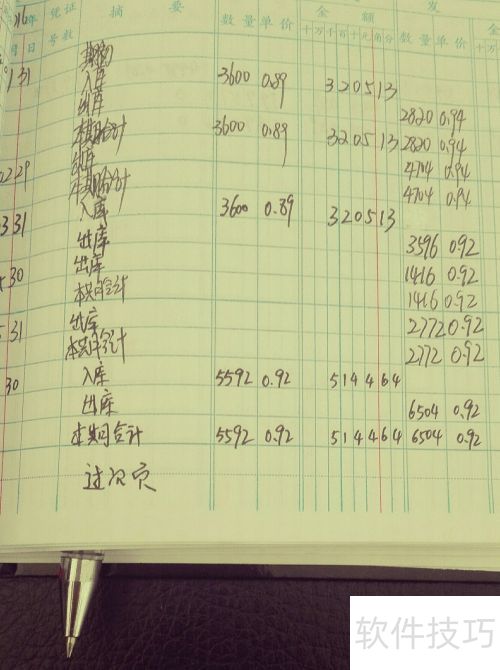 16年 凭证 摘 要 数量 单价 金 额 发
月 日 号数 十 万 千 百 十 元 角 分 数量 单价 金
十 万
期初
1 31 入库 3600 0.89 320513
出库 2820 0.94
本期合计 3600 0.89 320513 2820 0.94
2 29 出库 4704 0.94
本期合计 4704 0.94
3 31 入库 3600 0.89 320513
出库 3596 0.92
30 出库 1416 0.92
本期合计 1416 0.92
5 31 出库 2772 0.92
本期合计 2772 0.92
30 入库 5592 0.92 514464
出库 6504 0.92
本期合计 5592 0.92 514464 6504 0.92
过次页
软件技巧